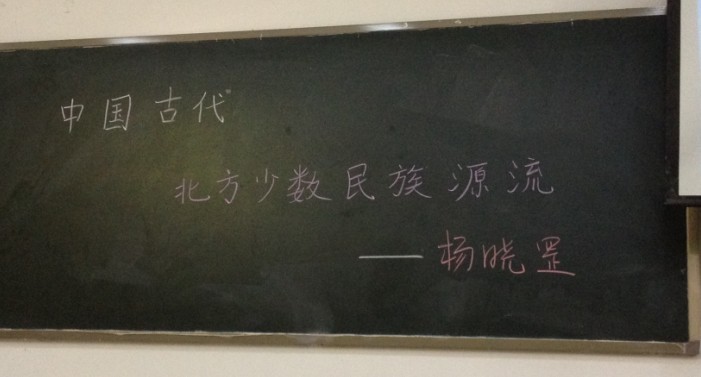 中国古代
北方少数民族源流
——杨晓罡